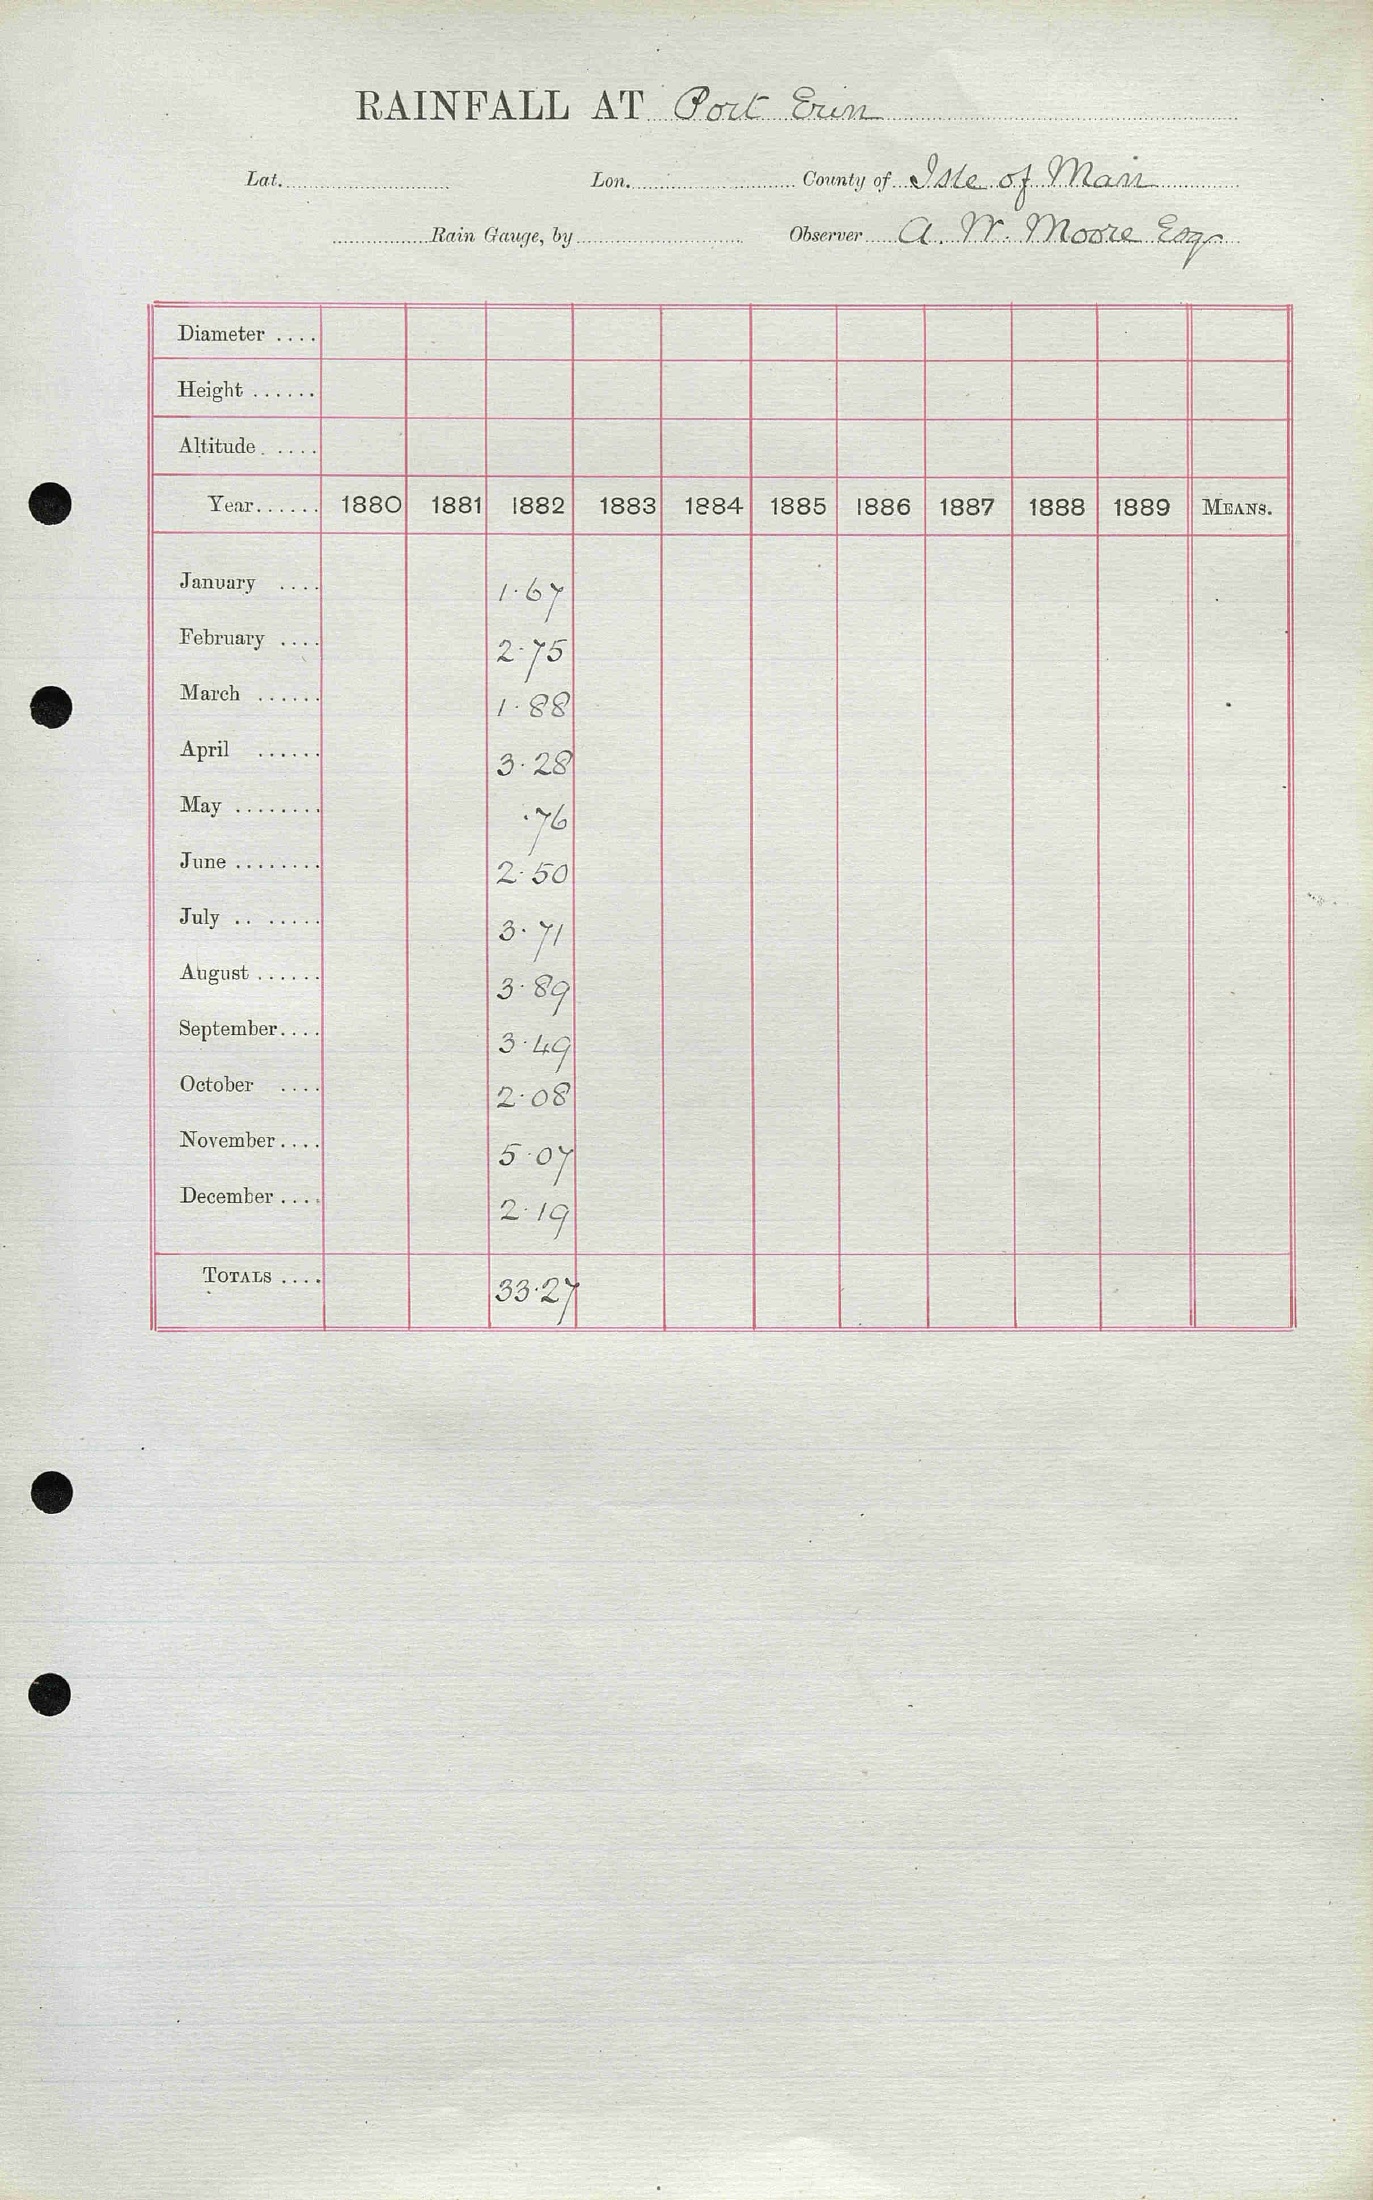 RAINFALL AT Port Erin
Lat. Lon. County of Isle of Man
Rain Gauge, by Observer A. W. Moore Esqr
Diameter ....
Height ......
Altitude. ....
Year...... 1880 1881 1882 1883 1884 1885 1886 1887 1888 1889 MEANS.
January .... 1.67
February .... 2.75
March ...... 1.88
April ...... 3.28
May ........ .76
June ........ 2.50
July .. ..... 3.71
August ...... 3.89
September.... 3.49
October .... 2.08
November.... 5.07
December .... 2.19
TOTALS .... 33.27